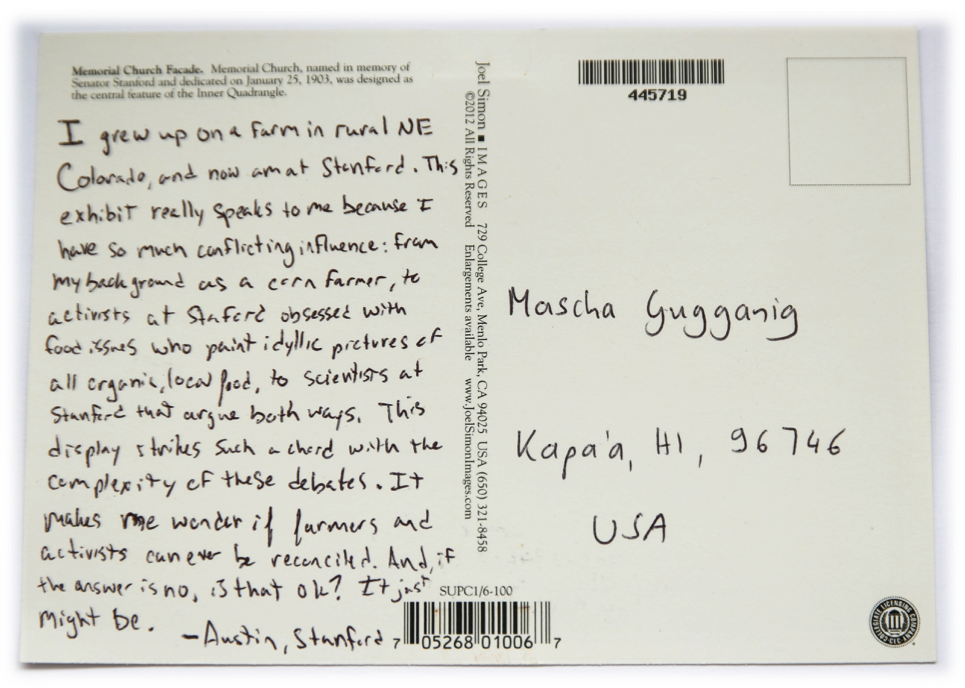 Memorial Church Facade. Memorial Church, named in memory of
Senator Stanford and dedicated on January 25, 1903, was designed as
the central feature of the Inner Quadrangle.
I grew up on a farm in rural NE
Colorado, and now am at Stanford. This
exhibit really speaks to me because I
have so much conflicting influence: from
my background as a corn farmer, to
activists at Stanford obsessed with
food issues who paint idyllic pictures of
all organic, local food, to scientists at
Stanford that argue both ways. This
display strikes such a chord with the
complexity of these debates. It
makes me wonder if farmers and
activists can ever be reconciled. And, if
the answer is no, is that ok? It just
might be.
-Austin, Stanford
Joel Simon ▪ IMAGES 729 College Ave, Menlo Park, CA 94025 USA (650) 321-8458
©2012 All Rights Reserved Enlargements available www.JoelSimonImages.com
SUPC1/6-100
7 05268 01006 7
445719
Mascha Gugganig
Kapa'a, HI, 96746
USA
COLLEGIATE LICENSING COMPANY
CLC